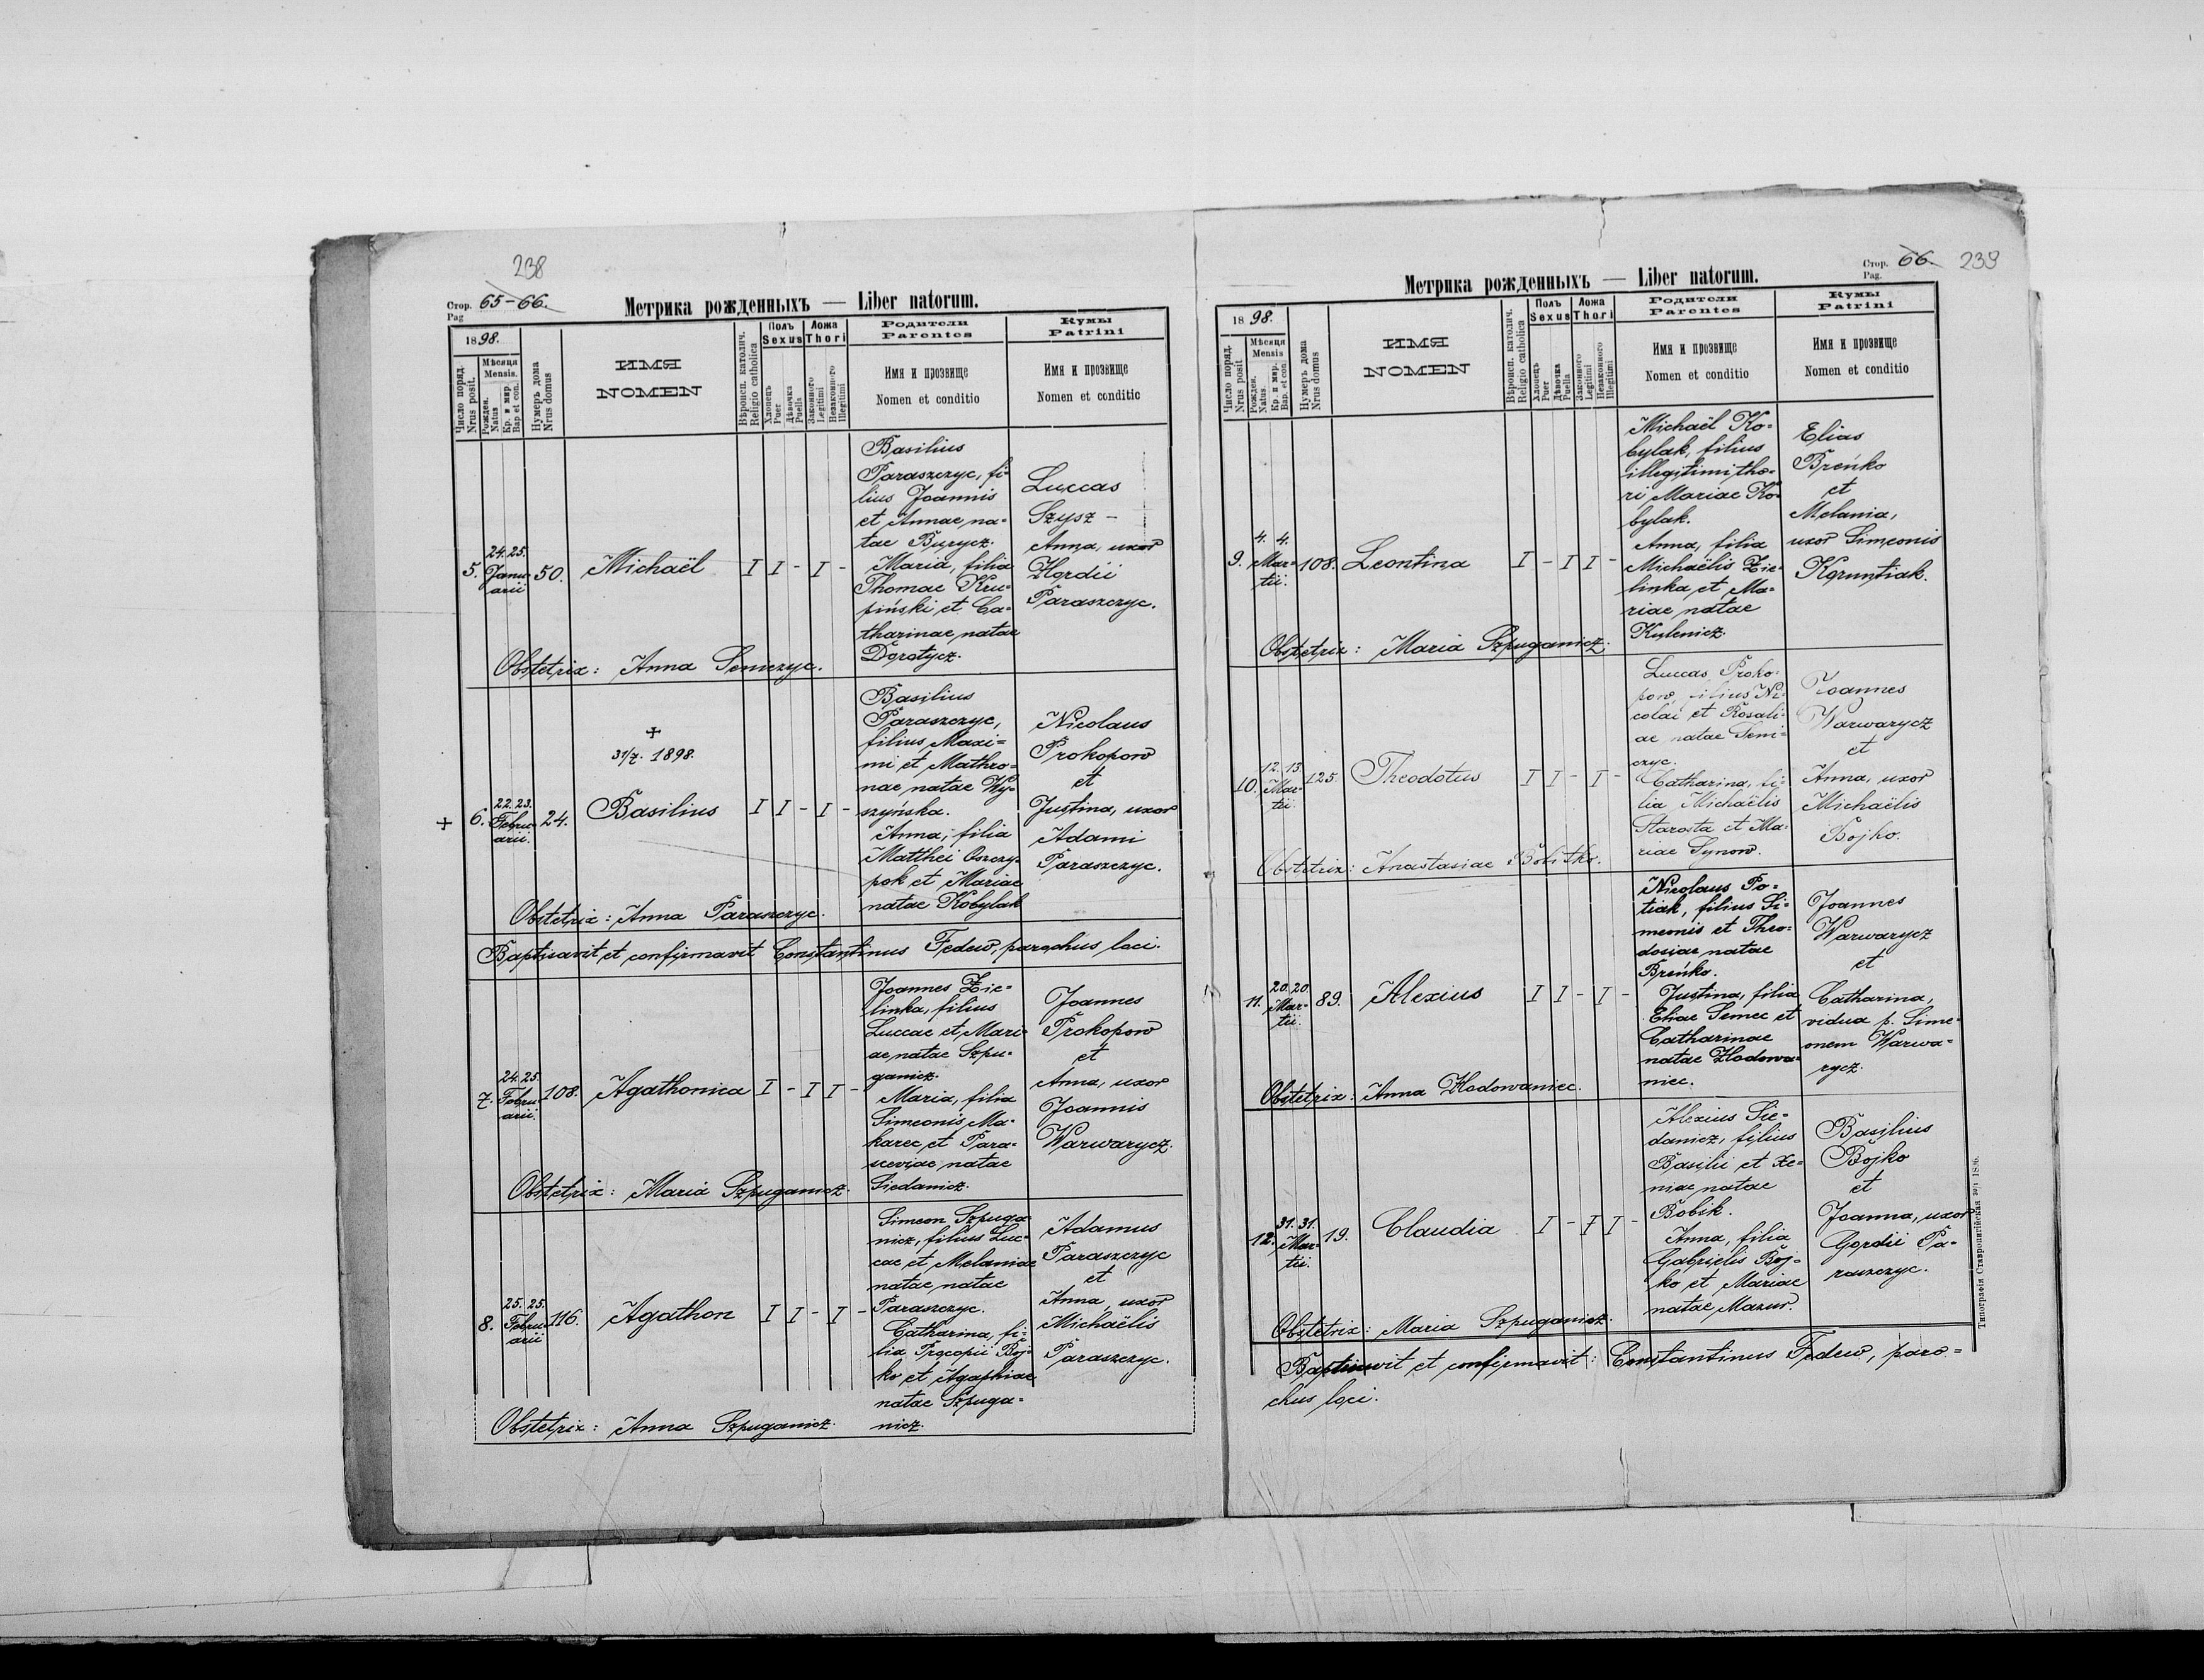 238
Стор. 65-66.
Pag
Метрика рожденныхъ — Liber natorum.
1898.
Число поряд. Nrus posit.
Мѣсяця Mensis.
Рожден. Natus
Кр. и мир. Bap. et con.
Нумеръ дома Nrus domus
ИМЯ
NOMEN
Вѣроисп. католич. Religio catholica
Полъ Sexus
Хлопецъ Puer
Дѣвочка Puella
Ложа Thori
Законного Legitimi
Незаконного Illegitimi
Родители
Parentes
Имя и прозвище
Nomen et conditio
Кумы
Patrini
Имя и прозвище
Nomen et conditio
5. 24. 25. Januarii 50. Michaël I I - I -
Basilius
Paraszczyc, fi-
lius Joannis
et Annae na-
tae Burycz.
Maria, filia
Thomae Kru-
piński et Ca-
tharinae natae
Dorotycz.
Luccas
Szysz -
Anna, uxor
Hordii
Paraszczyc.
Obstetrix: Anna Semczyc.
+
31/7. 1898.
+ 6. 22. 23. Februarii. 24. Basilius I I - I -
Basilius
Paraszczyc,
filius Maxi=
mi et Mathro=
nae natae Wy=
szyńska.
Anna, filia
Matthei Oszczy-
pok et Mariae
natae Kobylak
Nicolaus
Prokopow
et
Justina, uxor
Adami
Paraszczyc.
Obstetrix: Anna Paraszczyc.
Baptisavit et confirmavit Constantinus Fedew, parochus loci.
7. 24. 25. Februarii. 108. Agathonica I - I I -
Joannes Zie=
linka, filius
Luccae et Mari-
ae natae Szpu-
ganicz.
Maria, filia
Simeonis Ma-
karec et Para-
sceviae natae
Siedanicz.
Joannes
Prokopow
et
Anna, uxor
Joannis
Warwarycz.
Obstetrix: Maria Szpuganicz.
8. 25. 25. Februarii 116. Agathon I I - I -
Simeon Szpuga
nicz, filius Luc-
cae et Melaniae
natae natae
Paraszczyc.
Catharina, fi-
lia Procopii Boj-
ko et Agaphiae
natae Szpuga=
nicz.
Adamus
Paraszczyc
et
Anna, uxor
Michaëlis
Paraszczyc.
Obstetrix: Anna Szpuganicz.
Стор. 66. 239
Pag.
Метрика рожденныхъ — Liber natorum.
1898.
Число поряд. Nrus posit
Мѣсяця Mensis
Рожден. Natus.
Кр. и мир. Bap. et con.
Нумеръ дома Nrus domus
ИМЯ
NOMEN
Вѣроисп. католич. Religio catholica
Полъ Sexus
Хлопецъ Puer
Дѣвочка Puella
Ложа Thori
Законного Legitimi
Незаконного Illegitimi
Родители
Parentes
Имя и прозвище
Nomen et conditio
Кумы
Patrini
Имя и прозвище
Nomen et conditio
9. 4. 4. Martii. 108. Leontina I - I I -
Michaël Ko=
bylak, filius
illegitimi tho-
ri Mariae Ko-
bylak.
Anna, filia
Michaëlis Zie-
linka et Ma-
riae natae
Kulenicz.
Elias
Breńko
et
Melania,
uxor Simeonis
Kgruntiak.
Obstetrix: Maria Szpuganicz.
10. 12. 13. Martii 125. Theodotus I I - I -
Luccas Proko-
pow, filius Ni-
colai et Rosali-
ae natae Sem-
czyc.
Catharina, fi-
lia Michaëlis
Starosta et Ma-
riae Synow.
Joannes
Warwarycz
et
Anna, uxor
Michaëlis
Bojko.
Obstetrix: Anastasiae
11. 20. 20. Martii. 89. Alexius I I - I -
Nicolaus Po=
tiak, filius Si=
meonis et Theo-
dosiae natae
Breńko.
Justina, filia
Eliae Semec et
Catharinae
natae Hodowa-
niec.
Joannes
Warwarycz
et
Catharina,
vidua p. Sime-
onem Warwa=
rycz.
Obstetrix: Anna Hodowaniec.
12. 31. 31. Martii. 19. Claudia I - I I -
Alexius Sie-
danicz, filius
Basilii et Xe=
niae natae
Bobik.
Anna, filia
Gabrielis Boj-
ko et Mariae
natae Mazur.
Basilius
Bojko
et
Joanna, uxor
Gordii Pa-
raszczyc.
Obstetrix: Maria Szpuganicz.
Baptisavit et confirmavit: Constantinus Fedew, paro=
chus loci.
Типографія Ставропигійская